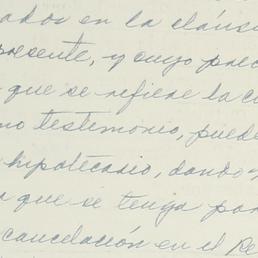 ados en la cláus
presente, y cuyo prec
que se refiere la c
mo testimonio, puede
hipotecario, dando
que se tenga por
cancelación en el Re